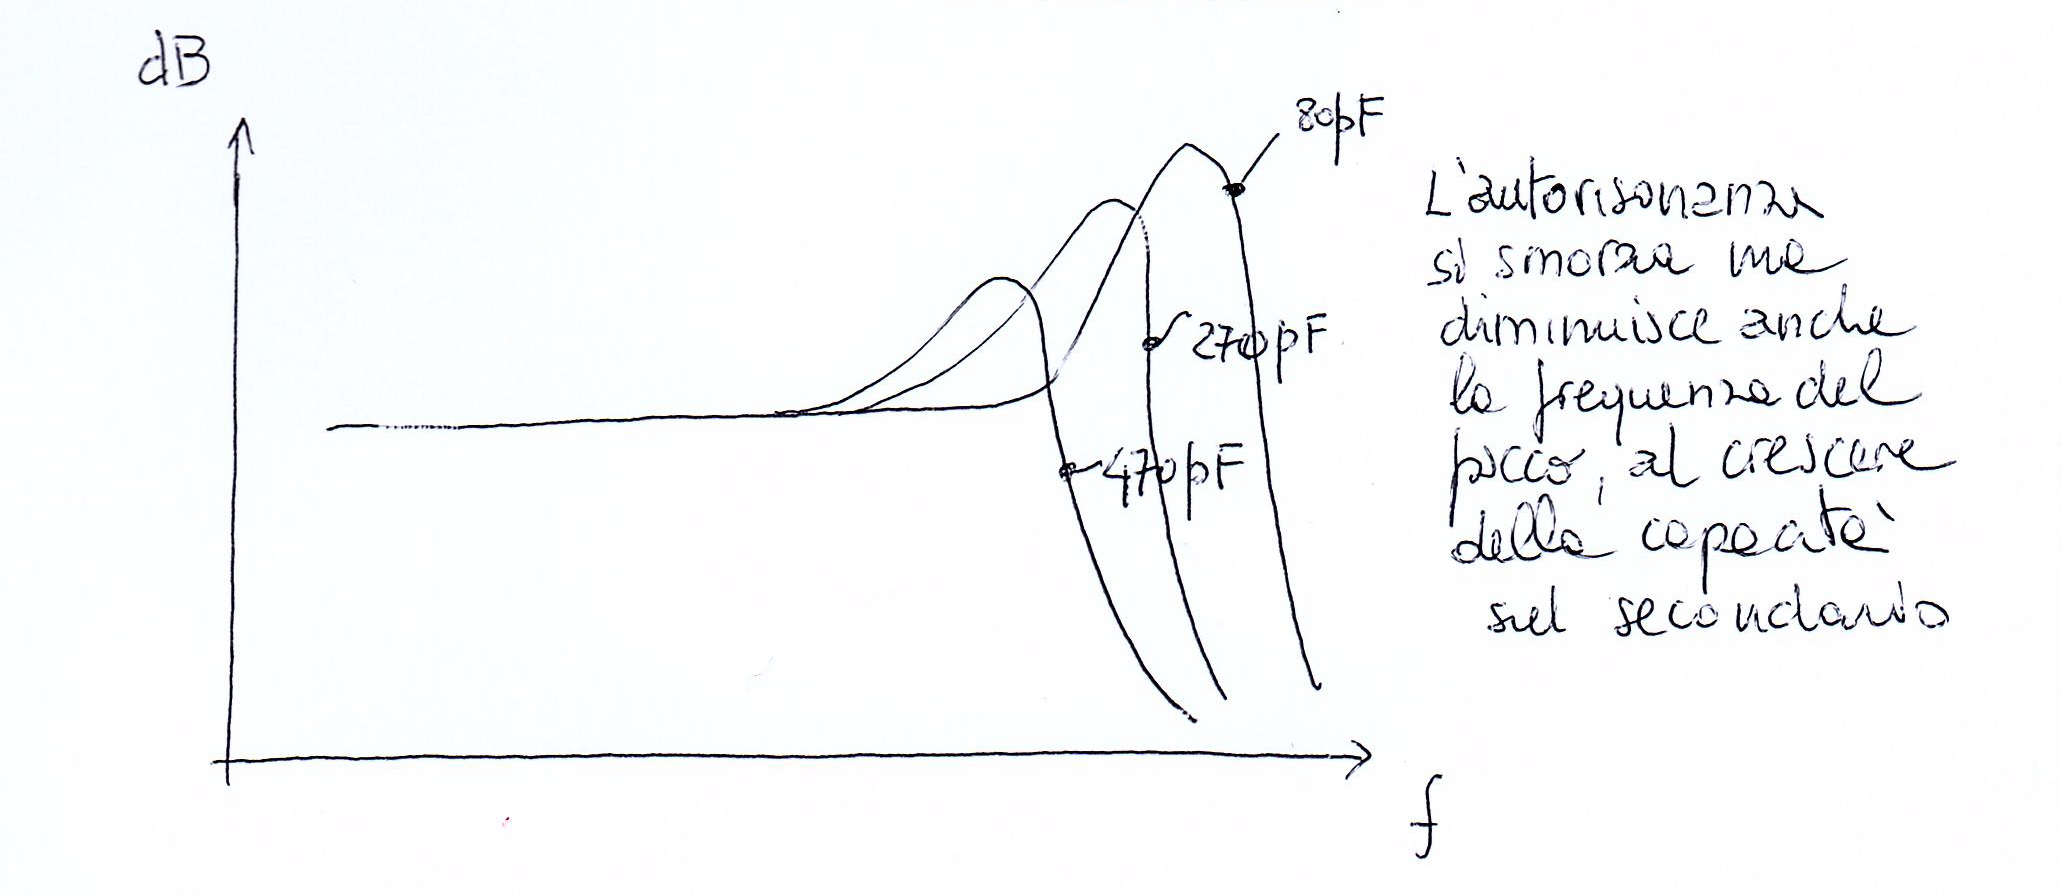 dB
80pF
270pF
470pF
f
L'autorisonanza
si smorza ma
diminuisce anche
la frequenza del
picco, al crescere
della capacità
sul secondario